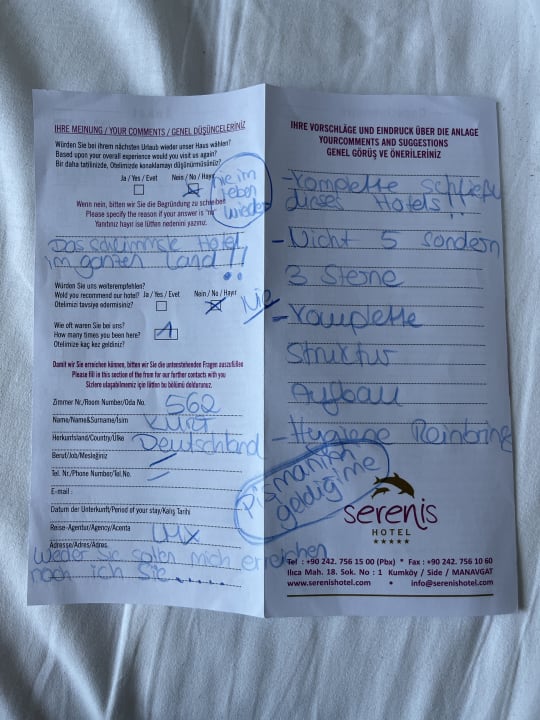 IHRE MEINUNG / YOUR COMMENTS / GENEL DÜŞÜNCELERİNİZ
Würden Sie bei ihrem nächsten Urlaub wieder unser Haus wählen?
Based upon your overall experience would you visit us again?
Bir daha tatilinizde, Otelimizde konaklamayı düşünürmüsünüz?
Ja / Yes / Evet Nein / No / Hayır
nie im
leben
wieder
Wenn nein, bitten wir Sie die Begründung zu schreiben
Please specify the reason if your answer is "no"
Yanıtınız hayır ise lütfen nedenini yazınız.
Das schlimmste Hotel
im ganzen Land !!
Würden Sie uns weiterempfehlen?
Wold you recommend our hotel? Ja / Yes / Evet Nein / No / Hayır
Otelimizi tavsiye edermisiniz?
Nie
Wie oft waren Sie bei uns?
How many times you been here? 1
Otelimize kaç kez geldiniz?
Damit wir Sie erreichen können, bitten wir Sie die untenstehenden Fragen auszufüllen
Please fill in this section of the from for further contacts with you
Sizlere ulaşabilmemiz için lütfen bu bölümü doldurunuz.
Zimmer Nr./Room Number/Oda No. 562
Name/Name&Surname/İsim Kurt
Herkunfsland/Country/Ülke Deutschland
Beruf/Job/Mesleğiniz
Tel. Nr./Phone Number/Tel.No.
E-mail :
Datum der Unterkunft/Period of your stay/Kalış Tarihi
Reise-Agentur/Agency/Acenta
Adresse/Adres/Adres.
Weder Sie sollen mich erreichen
noch ich Sie ......
IHRE VORSCHLÄGE UND EINDRUCK ÜBER DIE ANLAGE
YOURCOMMENTS AND SUGGESTIONS
GENEL GÖRÜŞ VE ÖNERİLERİNİZ
- Komplette
dieses Hotels !!
- Nicht 5 sondern
3 Sterne
- Komplette
Struktur
Aufbau
- Hygiene
Pişmanım
geldiğime
serenis
HOTEL
★★★★★
Tel : +90 242. 756 15 00 (Pbx) * Fax : +90 242. 756 10 60
Ilıca Mah. 18. Sok. No : 1 Kumköy / Side / MANAVGAT
www.serenishotel.com • info@serenishotel.com